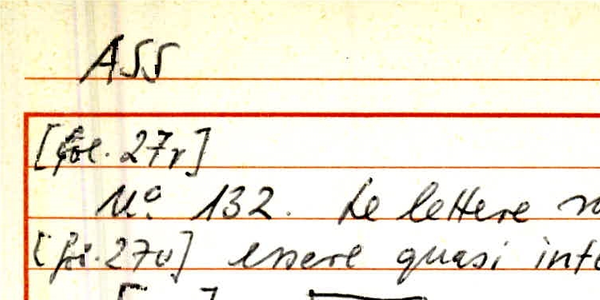 ASS
[fol. 27r]
No. 132. Le lettere
[fol. 27v] essere quasi